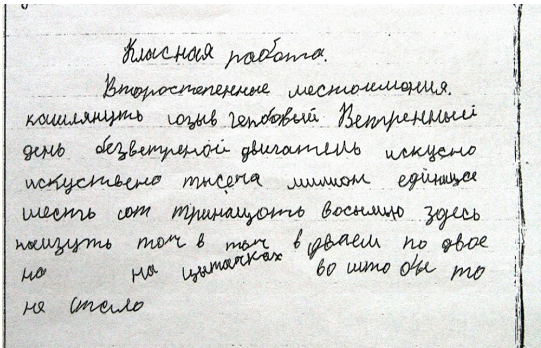 Класная работа.
Второстепенные местоимания.
кашлянуть созыв гербовый Ветренный
день безветреной двигатель искусно
искуствено тысеча милион единица
шесть сот тринацоть восьмию здесь
наизуть точ в точ в двоем по двое
но на цыпачках во што бы то
не стало